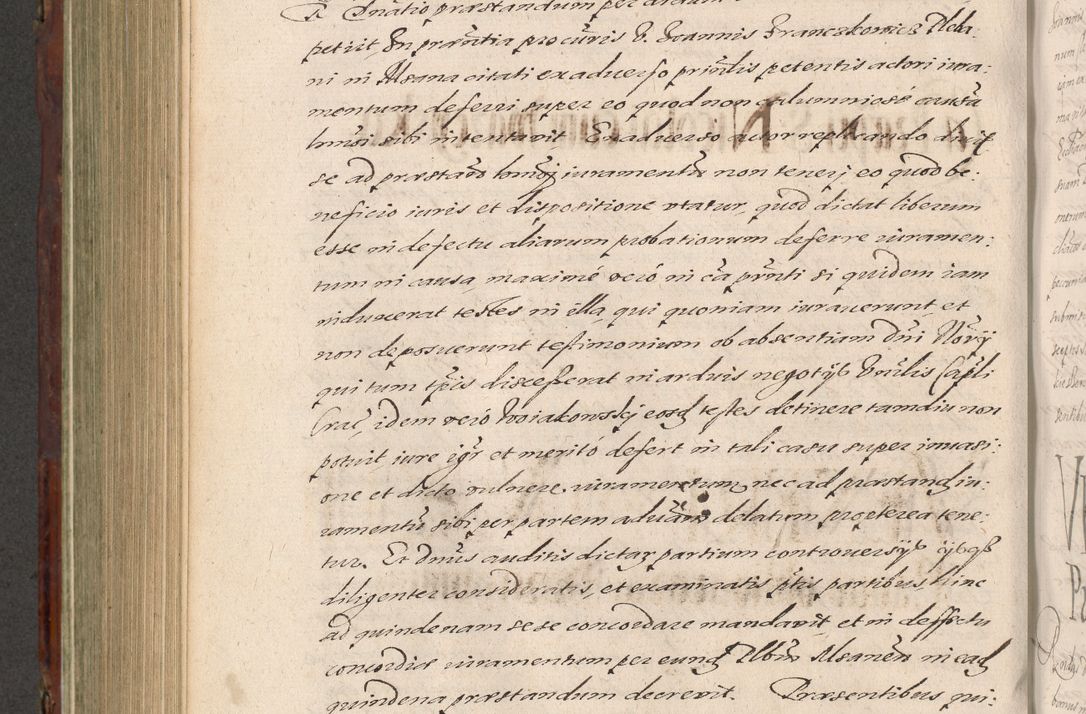 petiit In praesentia procuris D. Joannis Franczkowicz Pleba:
ni in Msana citati ex adverso prinlis petentis actori iura:
mentum deferri super eo quod non calumniosé causã
hmõi sibi intentavit, Ex adverso actor replicando dixit
se ad præstand hmõi iuramentũ non teneri eo quod be:
neficio iuris et dispositione utatur, quod dictat liberum
esse in defectu aliarum probationum deferre iuramen:
tum in causa maximé veró in ca prnti si quidem iam
induxerat testes in illa, qui quoniam iuraverunt, et
non deposuerunt testimonium ob absentiam Dni Norij
qui tum tpis discesserat in arduis negotijs Vnlis Capli
Crac, idem veró Woiakowskj eosq testes detinere tamdiu non
potuit, iure igr et meritó defert in tali casu super invasi:
one et dicto vulnere, iuramentum, nec ad præstand iu:
ramentũ sibi per partem aduersã delatum propterea tene:
tur. Et Dnus auditis dictar partium controversijs ijsqs
diligenter consideratis, et examinatis ptis partibus hinc
ad quindenam sese concordare mandavit et in deffectu
concordiæ iuramentum per eund Plbũ Msanen in ead
quindena præstandum decrevit. Præsentibus qui: